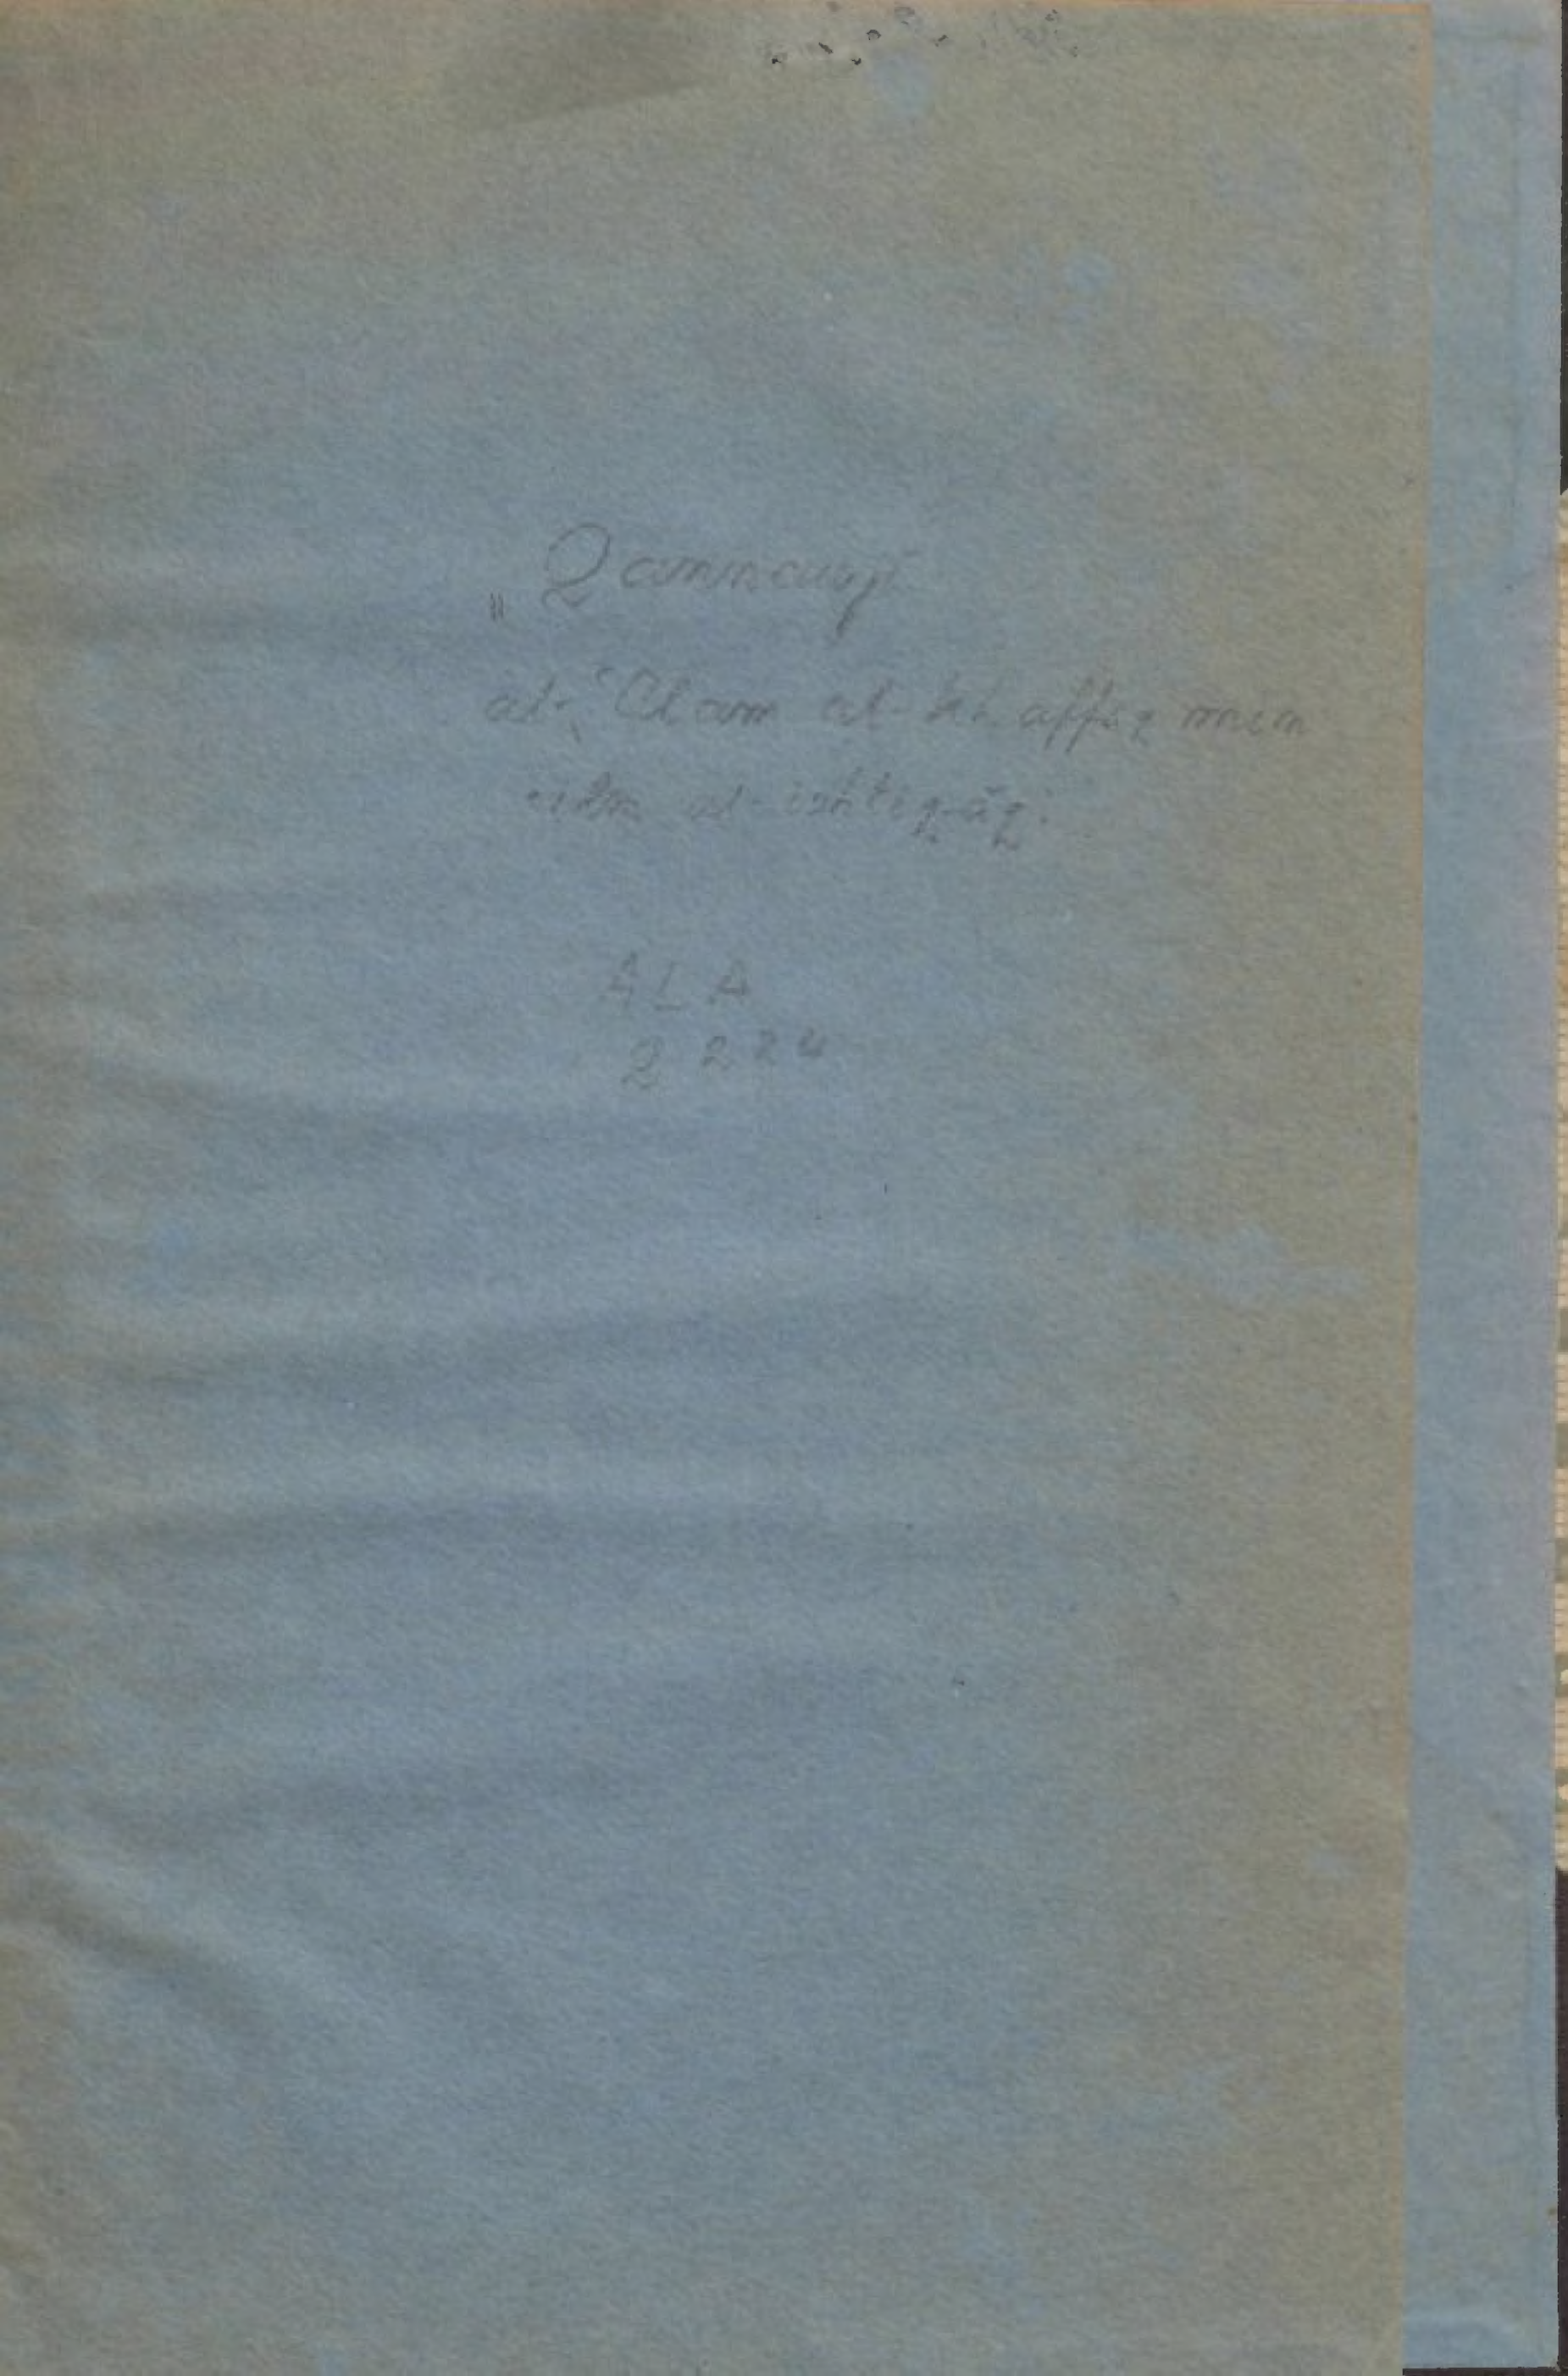 „ Qannauji
al-ʿAlam al-khaffaq min
ʿilm al-ishtiqāq.
ALA
2224